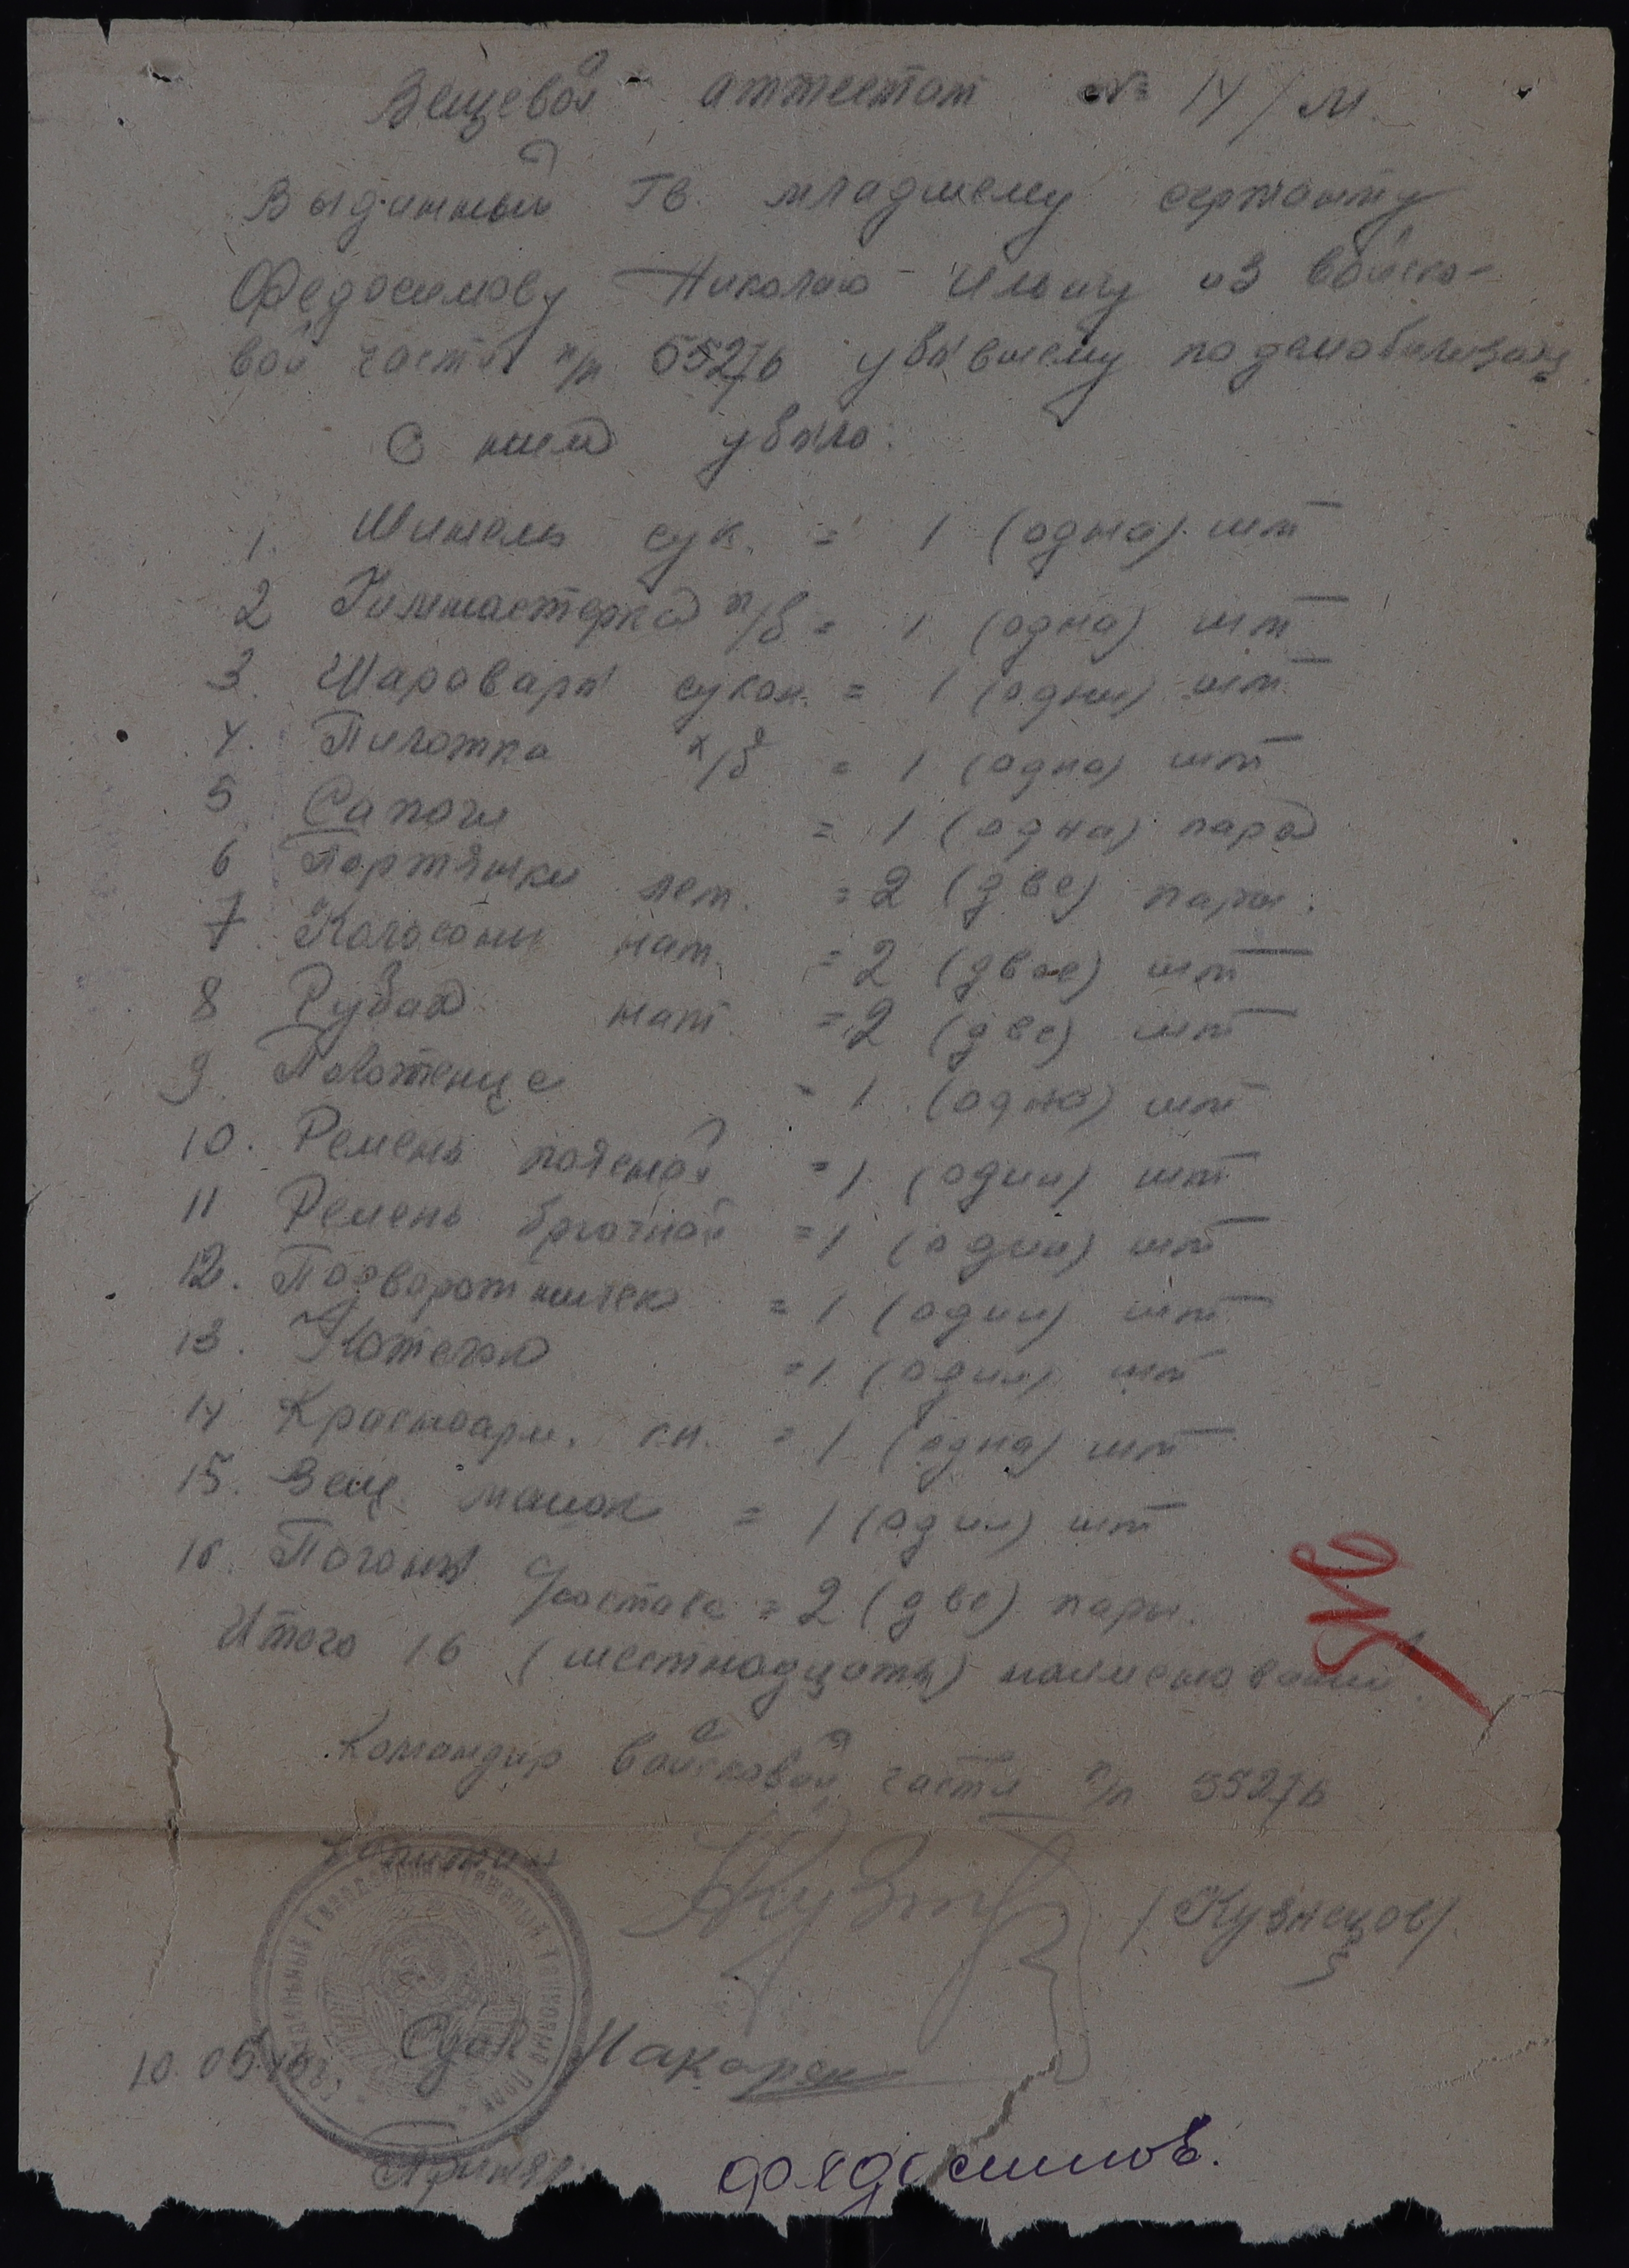 Вещевой аттестат № 14/м.
Выданный Гв. младшему сержанту
Федосимову Николаю Ильичу из войско-
вой части п/п 55276 убывшему по демобилизации
С ним убыло:
1. Шинель сук. = 1 (одна) шт
2 Гимнастерка п/в = 1 (одна) шт
3. Шаровары сукон. = 1 (одни) шт.
4. Пилотка х/б = 1 (одна) шт
5 Сапоги = 1 (одна) пара
6 Портянки лет. = 2 (две) пары.
7. Кальсоны нат. = 2 (двое) шт
8 Рубах нат. = 2 (две) шт
9. Полотенце = 1 (одно) шт
10. Ремень поясной = 1 (один) шт
11 Ремень брючной = 1 (один) шт
12. Подворотничек = 1 (один) шт
13. = 1 (один) шт
14 Красноарм. кн. = 1 (одна) шт
15. Вещ. мешок = 1 (один) шт
16. Погоны = 2 (две) пары.
Итого 16 (шестнадцать) наименований.
Командир войсковой части п/п 55276
Капитан
/Кузнецов/
Гвардейский Тяжелый Танковый Полк
Сдал
10.05.
Принял
Федосимов.